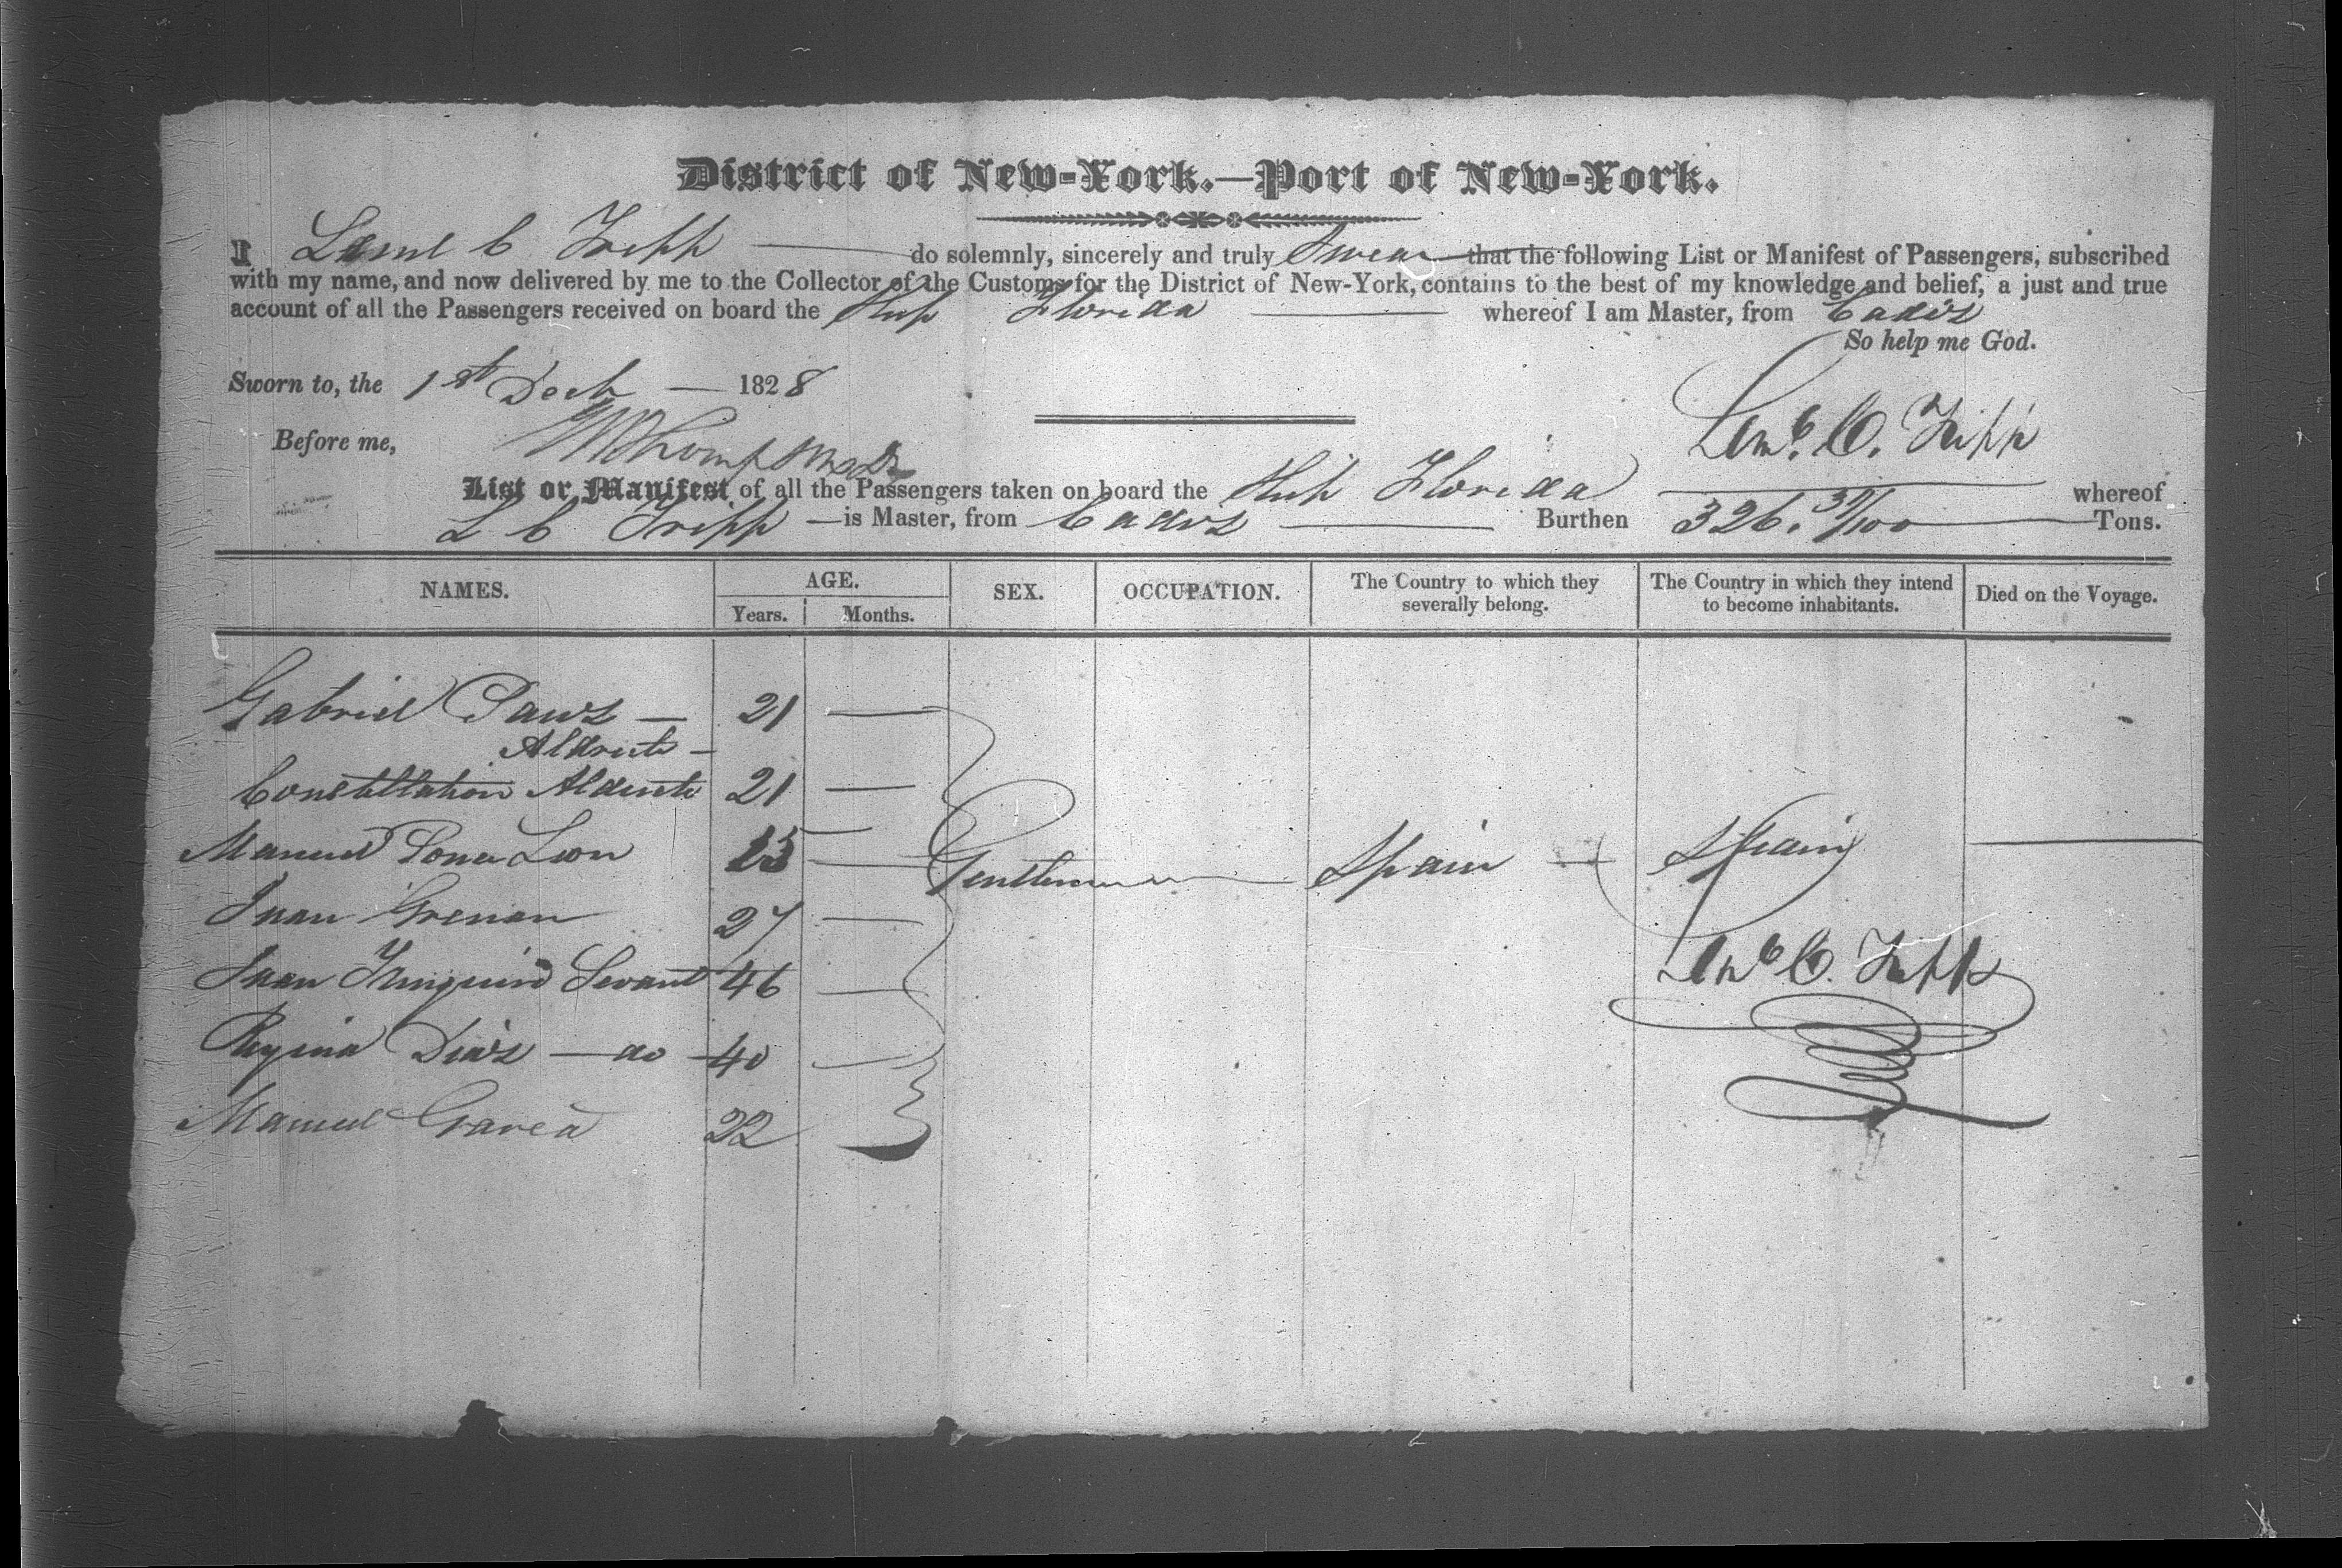 District of New-York.—Port of New-York.
I Leml C Tripp — do solemnly, sincerely and truly Swear that the following List or Manifest of Passengers, subscribed
with my name, and now delivered by me to the Collector of the Customs for the District of New-York, contains to the best of my knowledge and belief, a just and true
account of all the Passengers received on board the Ship Florida — whereof I am Master, from Cadiz
So help me God.
Sworn to, the 1st Decb — 1828
Lemb. C. Tripp
Before me,
List or Manifest of all the Passengers taken on board the Ship Florida — whereof
L C Tripp — is Master, from Cadiz — Burthen 326. Tons.
NAMES. AGE. SEX. OCCUPATION. The Country to which they severally belong. The Country in which they intend to become inhabitants. Died on the Voyage.
Years. Months.
Gabriel — 21 —
21 —
Manuel Leon —
Juan 27 —
Gentlemen — Spain — Spain —
Juan Servant 46 —
Lemb C. Tripp
Regina Diaz — do — 40 —
Manuel Garca 22